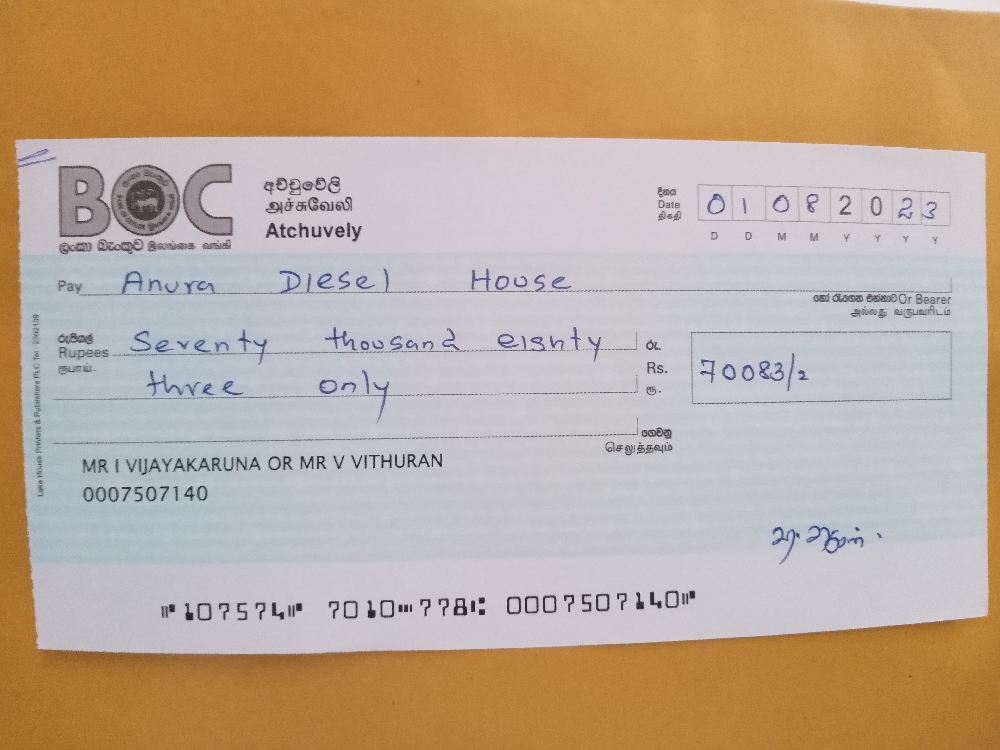 BOC
ලංකා බැංකුව இலங்கை வங்கி
අච්චුවේලි
அச்சுவேலி
Atchuvely
දිනය
Date
திகதி
0 1 0 8 2 0 2 3
D D M M Y Y Y Y
Pay Anura Diesel House
හෝ රැගෙන එන්නාට Or Bearer
அல்லது வருபவரிடம்
රුපියල්
Rupees Seventy thousand eighty
ரூபாய்.
three only
රු.
Rs.
ரூ.
70083/2
ගෙවනු
செலுத்தவும்
MR I VIJAYAKARUNA OR MR V VITHURAN
0007507140
Lake House Printers & Publishers PLC Tel :
⑈107574⑈ 7010⑉778⑆ 0007507140⑈